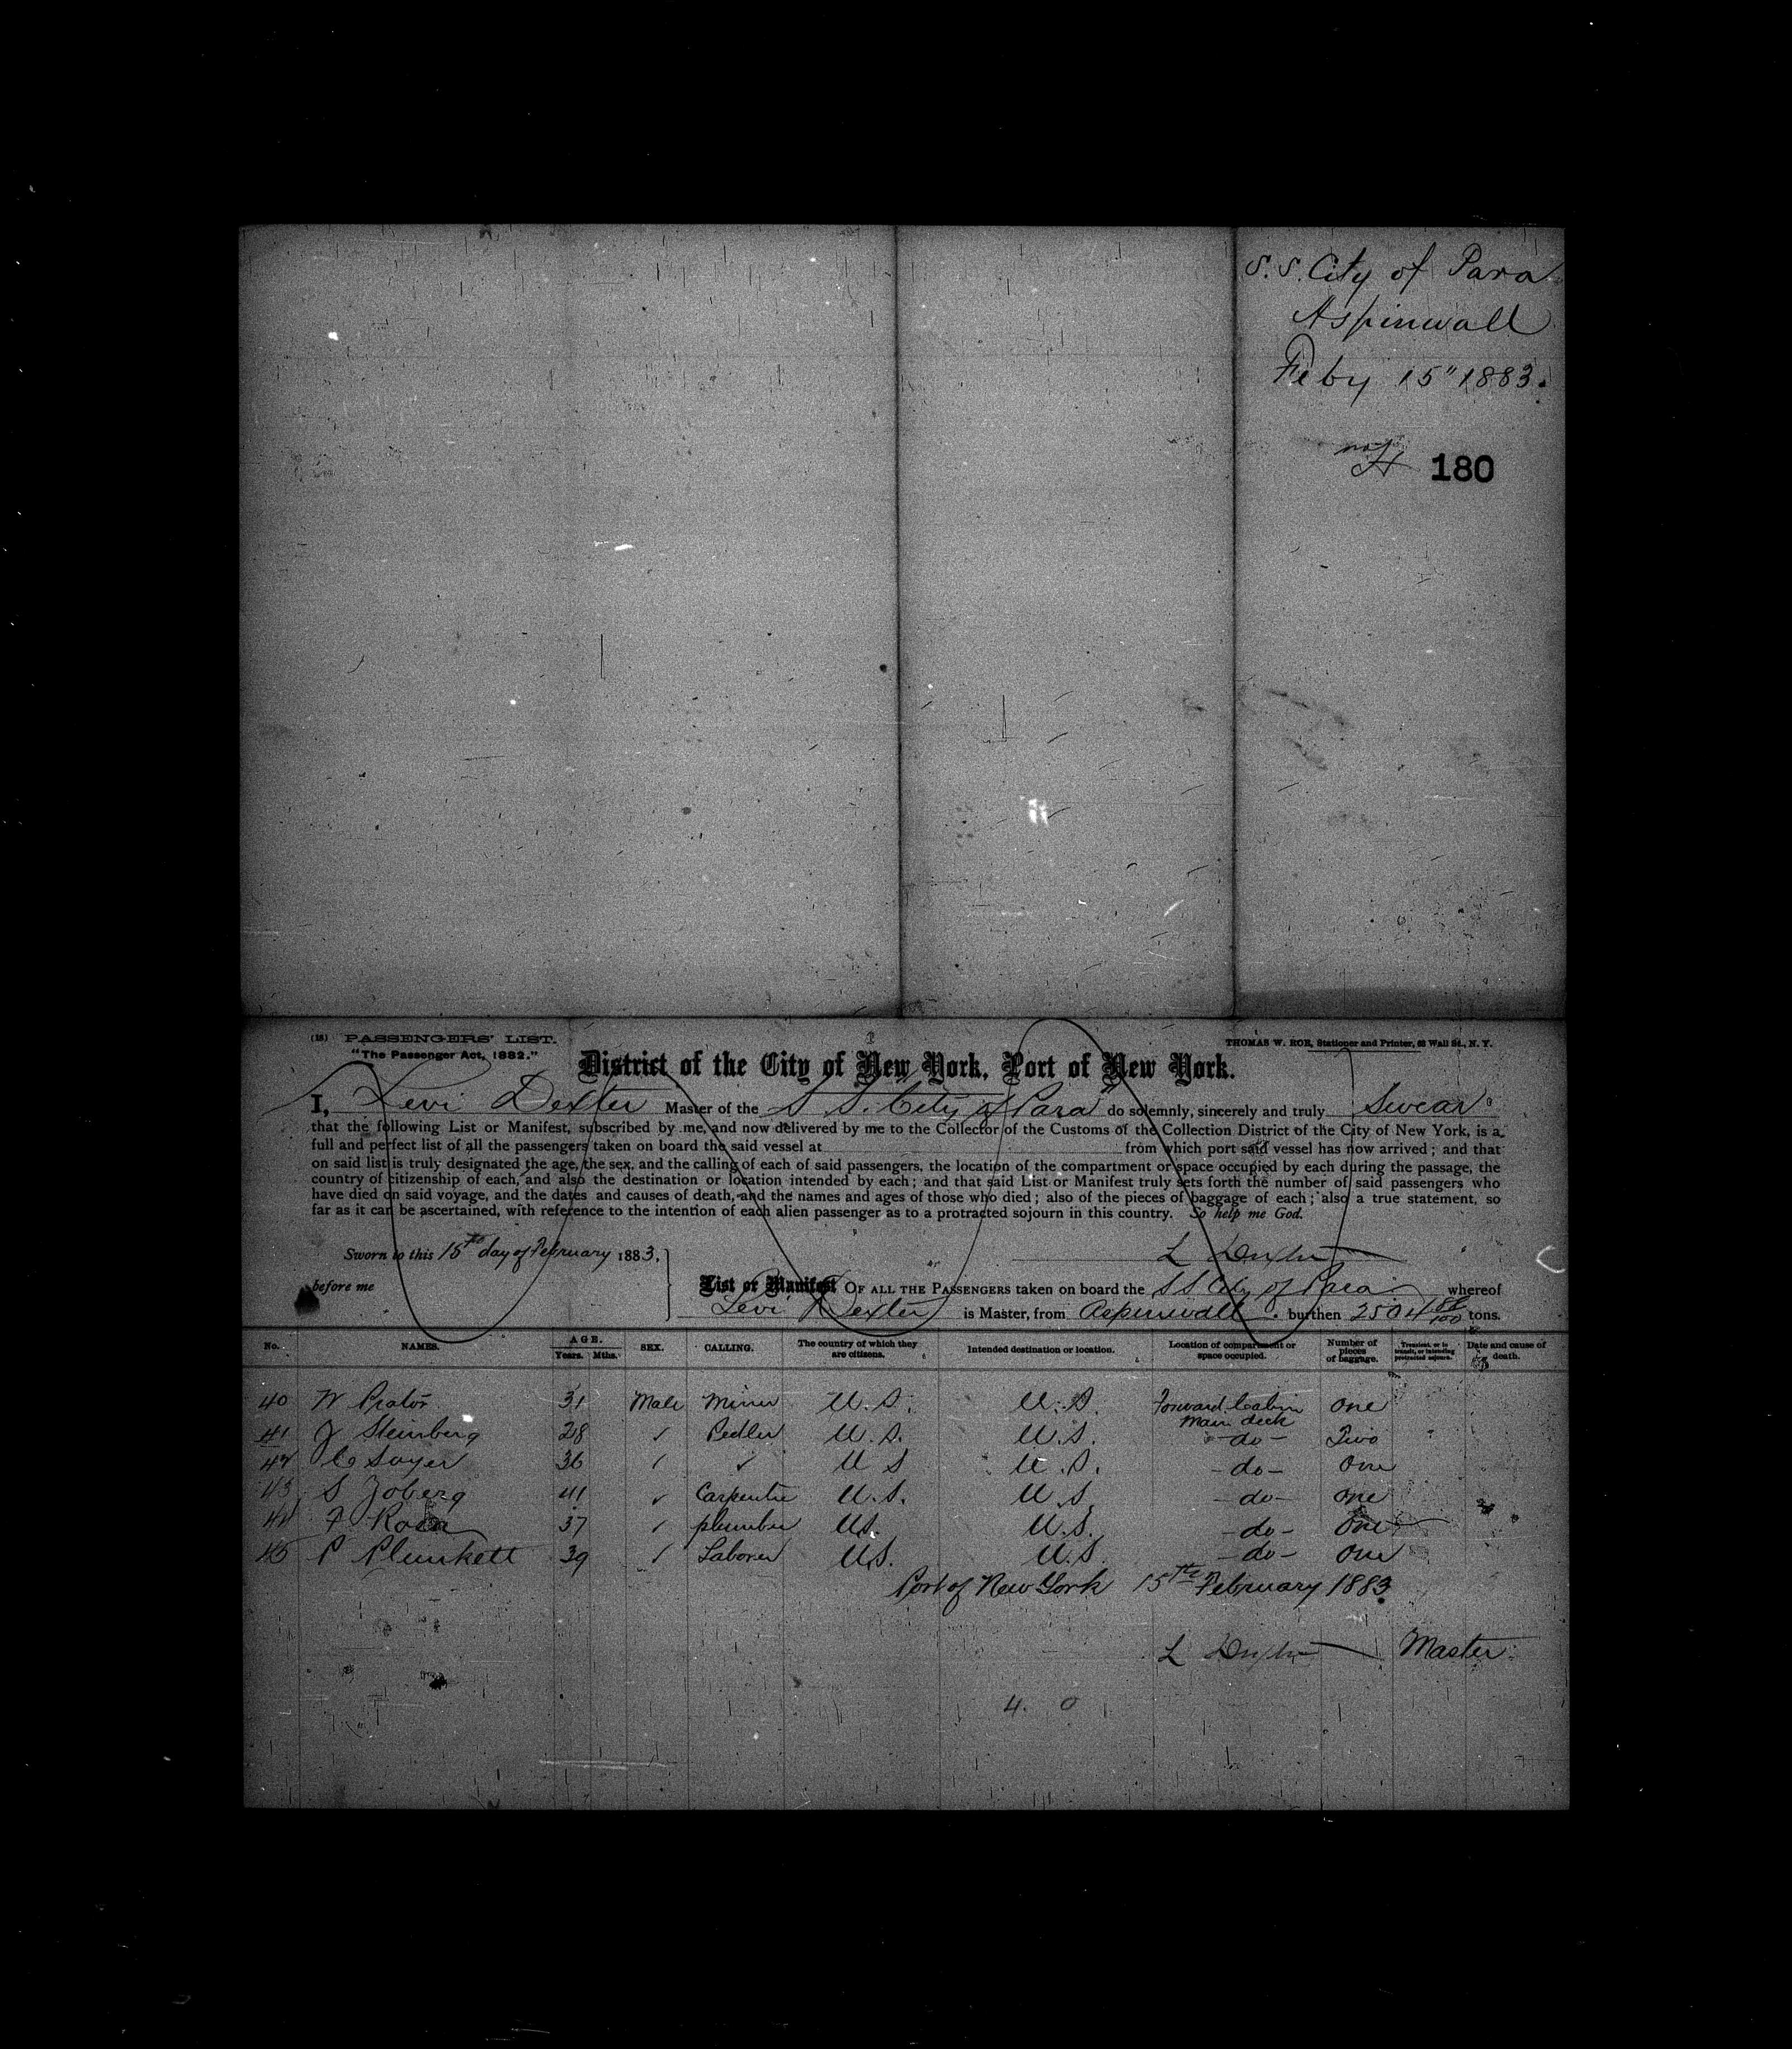 S. S. City of Para
Aspinwall
Feby 15" 1883.
180
(18) PASSENGERS' LIST.
"The Passenger Act, 1882."
THOMAS W. ROE, Stationer and Printer, 62 Wall St., N. Y.
District of the City of New York, Port of New York.
I, Levi Dexter Master of the S S. "City of Para" do solemnly, sincerely and truly Swear
that the following List or Manifest, subscribed by me, and now delivered by me to the Collector of the Customs of the Collection District of the City of New York, is a
full and perfect list of all the passengers taken on board the said vessel at from which port said vessel has now arrived; and that
on said list is truly designated the age, the sex, and the calling of each of said passengers, the location of the compartment or space occupied by each during the passage, the
country of citizenship of each, and also the destination or location intended by each; and that said List or Manifest truly sets forth the number of said passengers who
have died on said voyage, and the dates and causes of death, and the names and ages of those who died; also of the pieces of baggage of each; also a true statement, so
far as it can be ascertained, with reference to the intention of each alien passenger as to a protracted sojourn in this country. So help me God.
Sworn to this 15th day of February 1883,
L Dexter
before me
List or Manifest OF ALL THE PASSENGERS taken on board the S S City of Para whereof
Levi Dexter is Master, from Aspinwall burthen 2504 88/100 tons.
No. NAMES. AGE. Years. Mths. SEX. CALLING. The country of which they are citizens. Intended destination or location. Location of compartment or space occupied. Number of pieces of baggage. Transient, or in transit, or intending protracted sojourn. Date and cause of death.
40 W Prator 31 Male Miner U. S. U. S. Forward Cabin Main deck One
41 J Steinberg 28 ✓ Pedler U. S. U. S. -do- Two
42 C Sayer 36 ✓ ✓ U S U. S. -do- One
43 S Zoberg 41 ✓ Carpenter U. S. U. S. -do- One
44 F Rosa 37 ✓ plumber U.S. U.S. -do- One
45 P Plunkett 39 ✓ Laborer U.S. U.S. -do- One
Port of New York 15th February 1883
L Dexter Master
4. 0